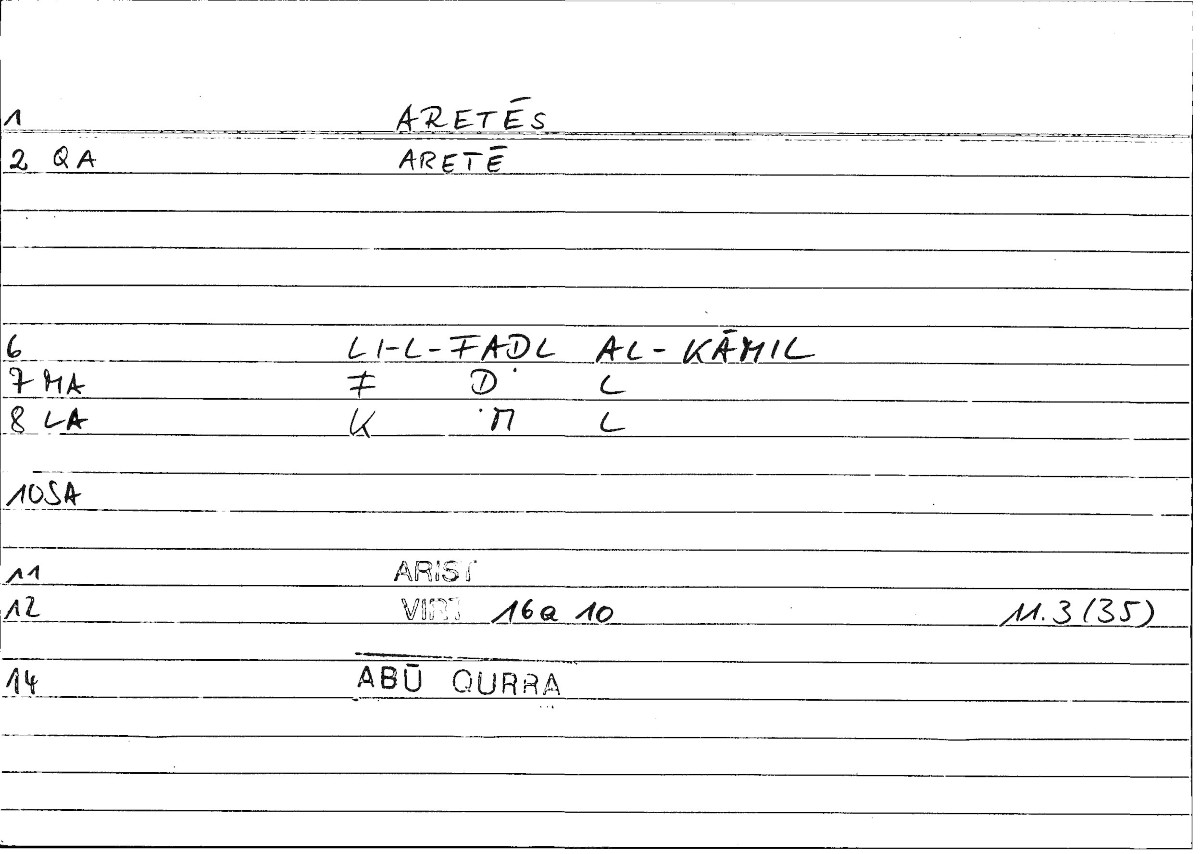 1 ARETĒS
2 QA ARETĒ
6 LI-L-FADL AL-KĀMIL
7 MA F D L
8 LA K M L
10SA
11 ARIST
12 VIRT 16a 10 11.3(35)
14 ABŪ QURRA